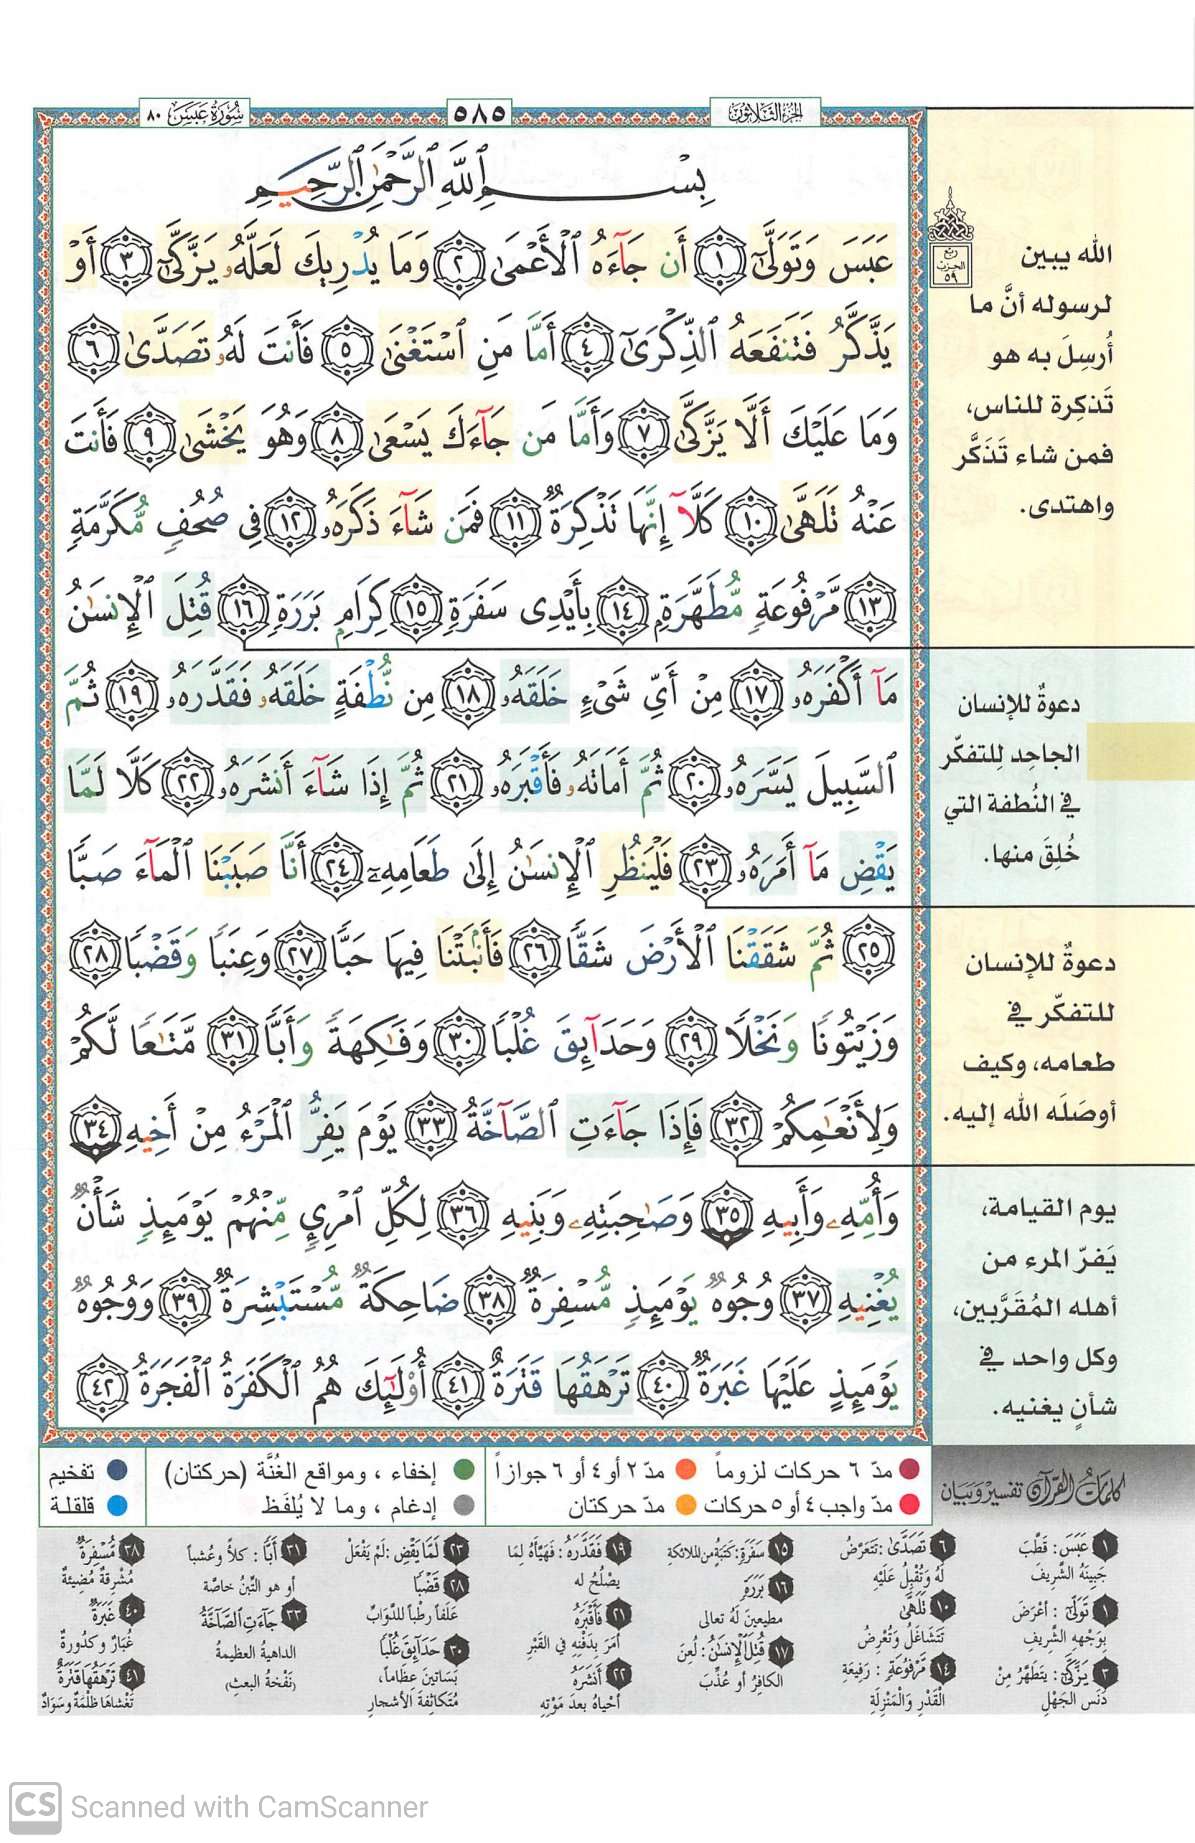 الجزء الثلاثون
٥٨٥
سورة عبس ٨٠
بِسْمِ ٱللَّهِ ٱلرَّحْمَٰنِ ٱلرَّحِيمِ
عَبَسَ وَتَوَلَّىٰٓ ١ أَن جَآءَهُ ٱلْأَعْمَىٰ ٢ وَمَا يُدْرِيكَ لَعَلَّهُۥ يَزَّكَّىٰٓ ٣ أَوْ
يَذَّكَّرُ فَتَنفَعَهُ ٱلذِّكْرَىٰٓ ٤ أَمَّا مَنِ ٱسْتَغْنَىٰ ٥ فَأَنتَ لَهُۥ تَصَدَّىٰ ٦
وَمَا عَلَيْكَ أَلَّا يَزَّكَّىٰ ٧ وَأَمَّا مَن جَآءَكَ يَسْعَىٰ ٨ وَهُوَ يَخْشَىٰ ٩ فَأَنتَ
عَنْهُ تَلَهَّىٰ ١٠ كَلَّآ إِنَّهَا تَذْكِرَةٌ ١١ فَمَن شَآءَ ذَكَرَهُۥ ١٢ فِى صُحُفٍ مُّكَرَّمَةٍ
١٣ مَّرْفُوعَةٍ مُّطَهَّرَةٍۭ ١٤ بِأَيْدِى سَفَرَةٍ ١٥ كِرَامٍۭ بَرَرَةٍ ١٦ قُتِلَ ٱلْإِنسَٰنُ
مَآ أَكْفَرَهُۥ ١٧ مِنْ أَىِّ شَىْءٍ خَلَقَهُۥ ١٨ مِن نُّطْفَةٍ خَلَقَهُۥ فَقَدَّرَهُۥ ١٩ ثُمَّ
ٱلسَّبِيلَ يَسَّرَهُۥ ٢٠ ثُمَّ أَمَاتَهُۥ فَأَقْبَرَهُۥ ٢١ ثُمَّ إِذَا شَآءَ أَنشَرَهُۥ ٢٢ كَلَّا لَمَّا
يَقْضِ مَآ أَمَرَهُۥ ٢٣ فَلْيَنظُرِ ٱلْإِنسَٰنُ إِلَىٰ طَعَامِهِۦٓ ٢٤ أَنَّا صَبَبْنَا ٱلْمَآءَ صَبًّا
٢٥ ثُمَّ شَقَقْنَا ٱلْأَرْضَ شَقًّا ٢٦ فَأَنۢبَتْنَا فِيهَا حَبًّا ٢٧ وَعِنَبًا وَقَضْبًا ٢٨
وَزَيْتُونًا وَنَخْلًا ٢٩ وَحَدَآئِقَ غُلْبًا ٣٠ وَفَٰكِهَةً وَأَبًّا ٣١ مَّتَٰعًا لَّكُمْ
وَلِأَنْعَٰمِكُمْ ٣٢ فَإِذَا جَآءَتِ ٱلصَّآخَّةُ ٣٣ يَوْمَ يَفِرُّ ٱلْمَرْءُ مِنْ أَخِيهِ ٣٤
وَأُمِّهِۦ وَأَبِيهِ ٣٥ وَصَٰحِبَتِهِۦ وَبَنِيهِ ٣٦ لِكُلِّ ٱمْرِئٍ مِّنْهُمْ يَوْمَئِذٍ شَأْنٌ
يُغْنِيهِ ٣٧ وُجُوهٌ يَوْمَئِذٍ مُّسْفِرَةٌ ٣٨ ضَاحِكَةٌ مُّسْتَبْشِرَةٌ ٣٩ وَوُجُوهٌ
يَوْمَئِذٍ عَلَيْهَا غَبَرَةٌ ٤٠ تَرْهَقُهَا قَتَرَةٌ ٤١ أُو۟لَٰٓئِكَ هُمُ ٱلْكَفَرَةُ ٱلْفَجَرَةُ ٤٢
ربع
الحزب
٥٩
الله يبين
لرسوله أنَّ ما
أُرسِلَ به هو
تَذكِرة للناس،
فمن شاء تَذَكَّر
واهتدى.
دعوةٌ للإنسان
الجاحِد لِلتفكّر
في النُطفة التي
خُلِقَ منها.
دعوةٌ للإنسان
للتفكّر في
طعامه، وكيف
أوصَلَه الله إليه.
يوم القيامة،
يَفرّ المرء من
أهله المُقَرَّبين،
وكل واحد في
شأنٍ يغنيه.
مدّ ٦ حركات لزوماً
مدّ ٢ أو ٤ أو ٦ جوازاً
إخفاء ، ومواقع الغُنَّة (حركتان)
تفخيم
مدّ واجب ٤ أو ٥ حركات
مدّ حركتان
إدغام ، وما لا يُلفَظ
قلقلة
كلمات القرآن تفسير وبيان
١ عَبَسَ : قَطَّبَ
جَبِينَهُ الشَّرِيفَ
١ تَوَلَّىٰٓ : أعْرَضَ
بِوَجْهِهِ الشَّرِيفِ
٣ يَزَّكَّىٰٓ : يَتَطَهَّرُ مِنْ
دَنَسِ الجَهْلِ
٦ تَصَدَّىٰ : تَتَعَرَّضُ
لَهُ وَتُقْبِلُ عَلَيْهِ
١٠ تَلَهَّىٰ
تَتَشَاغَلُ وَتُعْرِضُ
١٤ مَّرْفُوعَةٍ : رَفِيعَةِ
القَدْرِ وَالْمَنْزِلَةِ
١٥ سَفَرَةٍ : كَتَبَةٍ من الملائكة
١٦ بَرَرَةٍ
مطيعينَ لَهُ تعالى
١٧ قُتِلَ ٱلْإِنسَٰنُ : لُعِنَ
الكافِرُ أو عُذِّبَ
١٩ فَقَدَّرَهُۥ : فَهَيَّأَهُ لِمَا
يَصْلُحُ له
٢١ فَأَقْبَرَهُۥ
أمَرَ بِدَفْنِهِ في القَبْرِ
٢٢ أَنشَرَهُۥ
أحْيَاهُ بعدَ مَوْتِهِ
٢٣ لَمَّا يَقْضِ : لَمْ يَفْعَلْ
٢٨ قَضْبًا
عَلَفاً رطْباً للدَّوَابِّ
٣٠ حَدَآئِقَ غُلْبًا
بَسَاتينَ عِظَاماً،
مُتَكاثِفةَ الأشجارِ
٣١ أَبًّا : كلأً وعُشباً
أو هو التِّبْنُ خاصَّة
٣٣ جَآءَتِ ٱلصَّآخَّةُ
الداهيةُ العظيمةُ
(نَفْخَةُ البعثِ)
٣٨ مُّسْفِرَةٌ
مُشْرِقَةٌ مُضِيئةٌ
٤٠ غَبَرَةٌ
غُبَارٌ و كدُورةٌ
٤١ تَرْهَقُهَا قَتَرَةٌ
تَغْشاهَا ظُلْمَةٌ وسَوَادٌ
CS Scanned with CamScanner